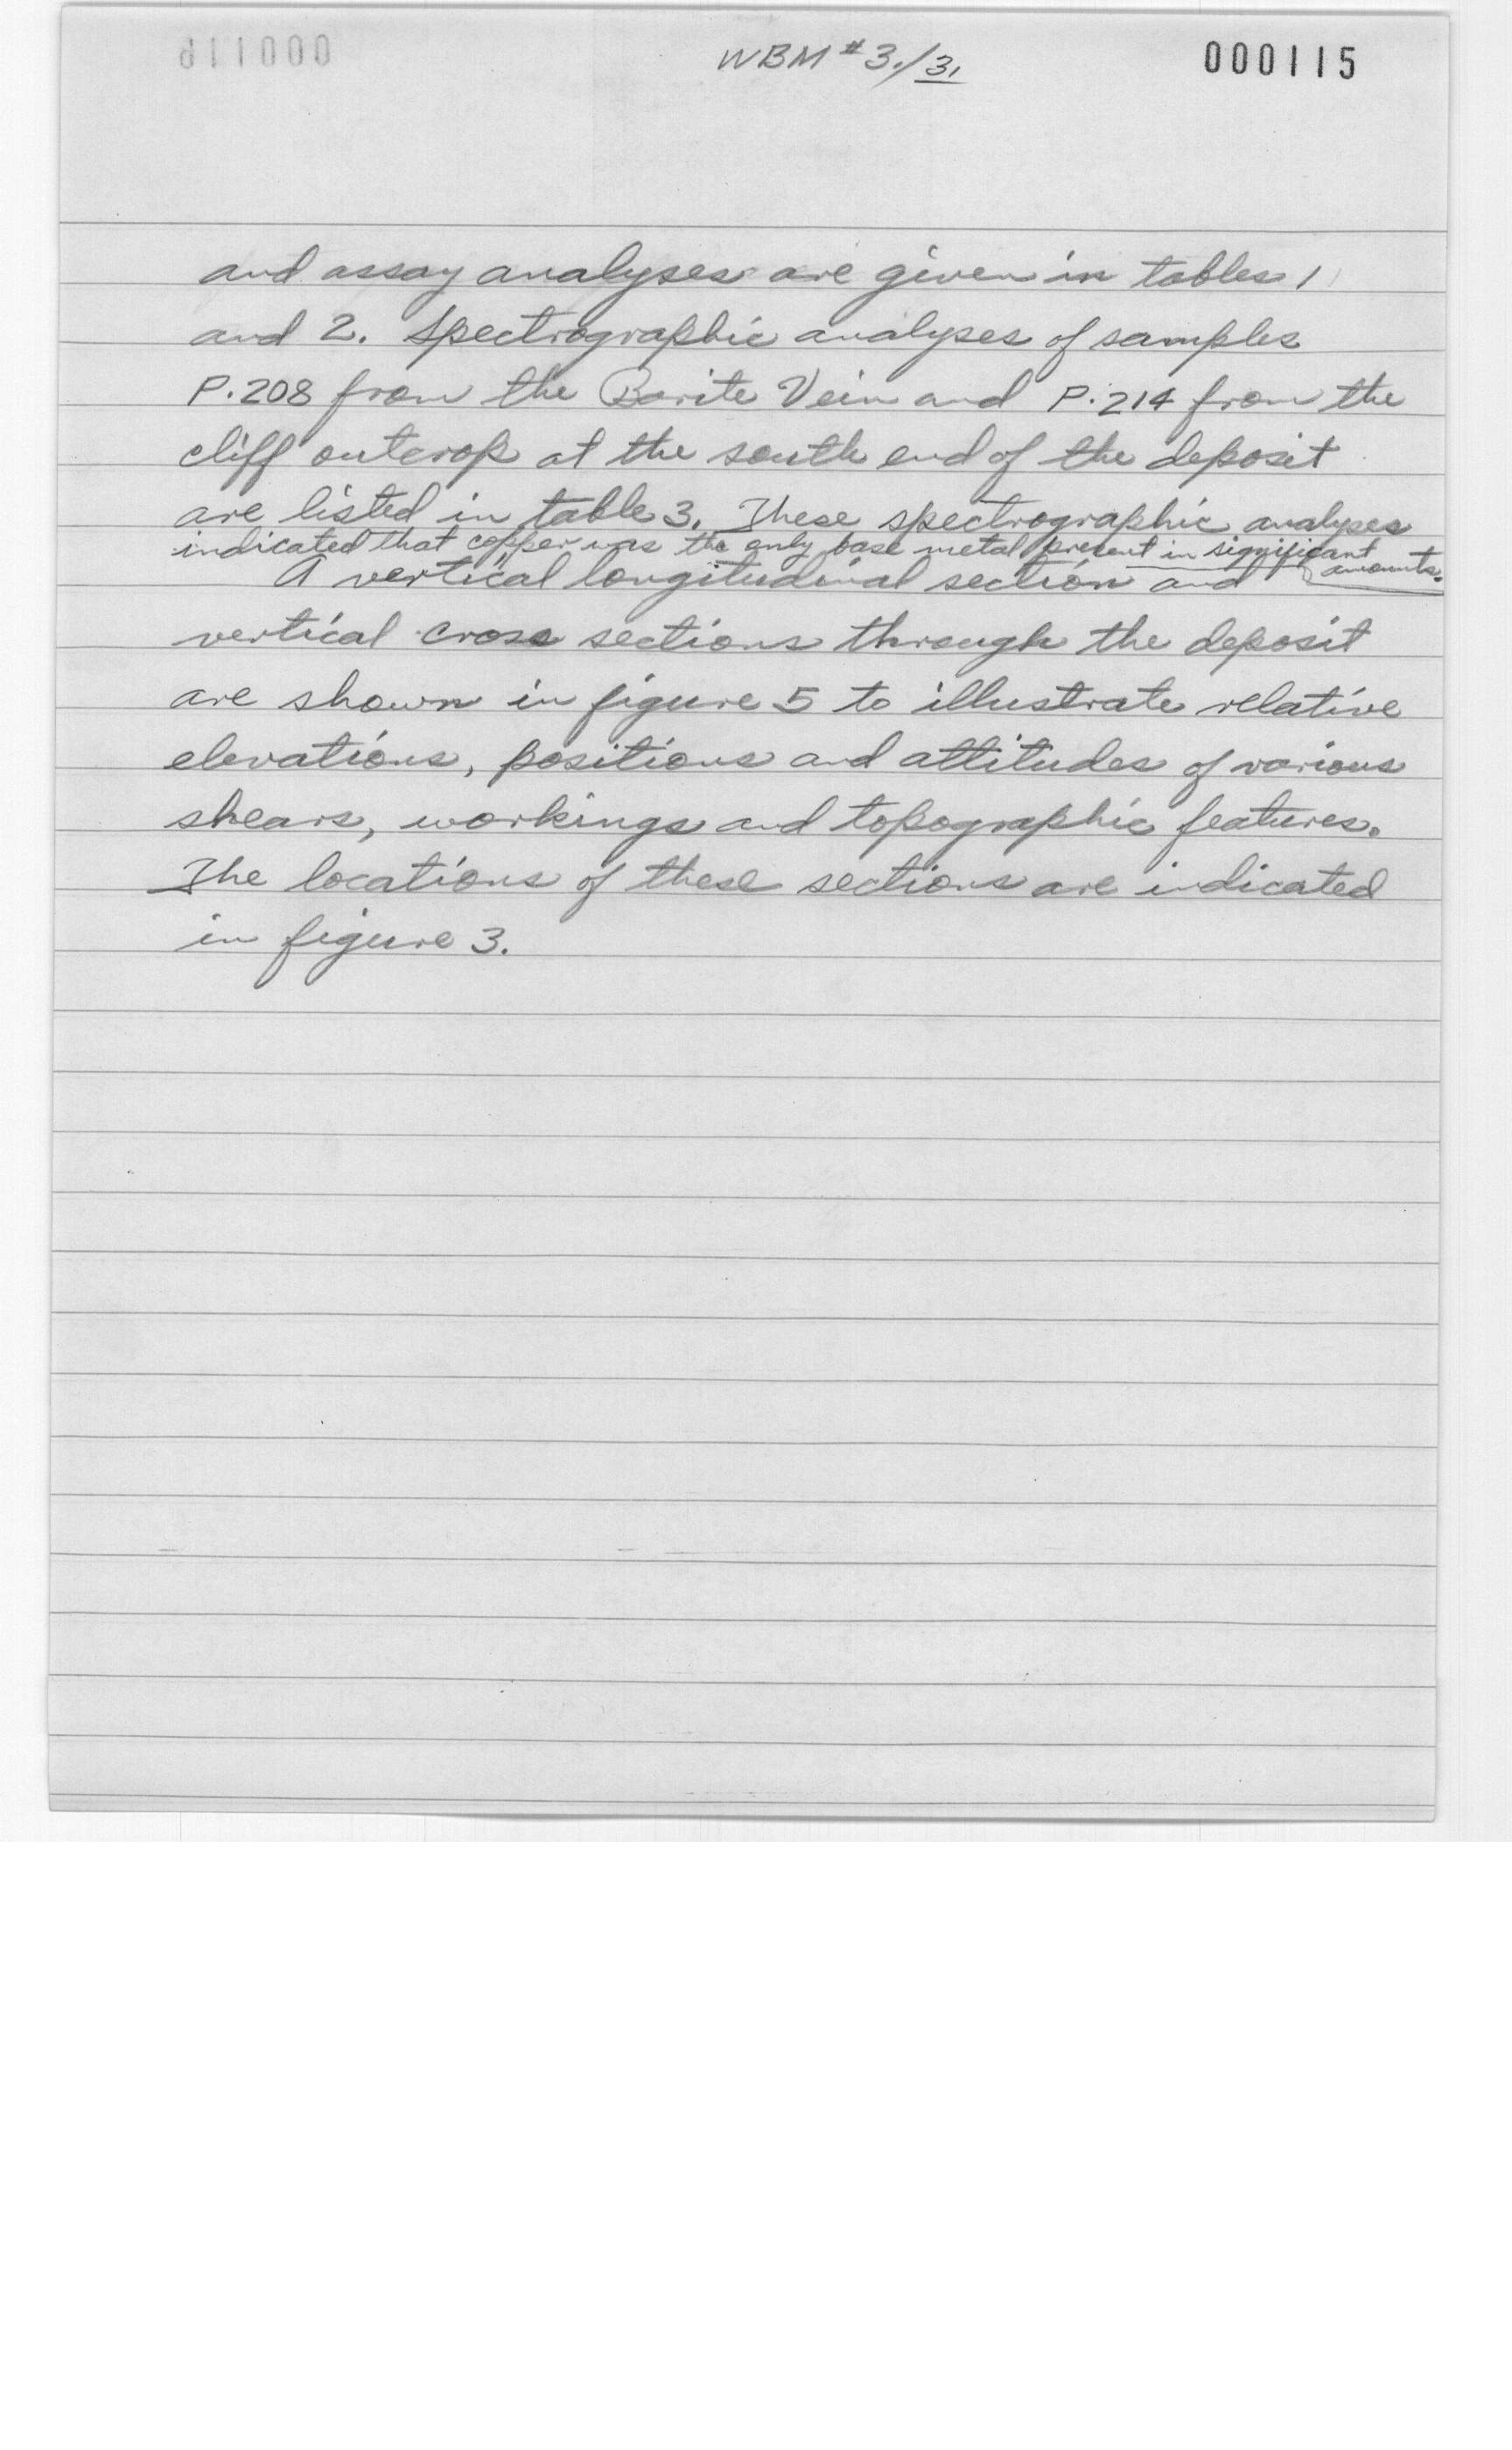 WBM #3./31
000115
and assay analyses are given in tables 1
and 2. Spectrographic analyses of samples
P.208 from the Barite Vein and P.214 from the
cliff outcrop at the south end of the deposit
are listed in table 3. These spectrographic analyses
indicated that copper was the only base metal present in significant
amounts.
A vertical longitudinal section and
vertical cross sections through the deposit
are shown in figure 5 to illustrate relative
elevations, positions and attitudes of various
shears, workings and topographic features.
The locations of these sections are indicated
in figure 3.